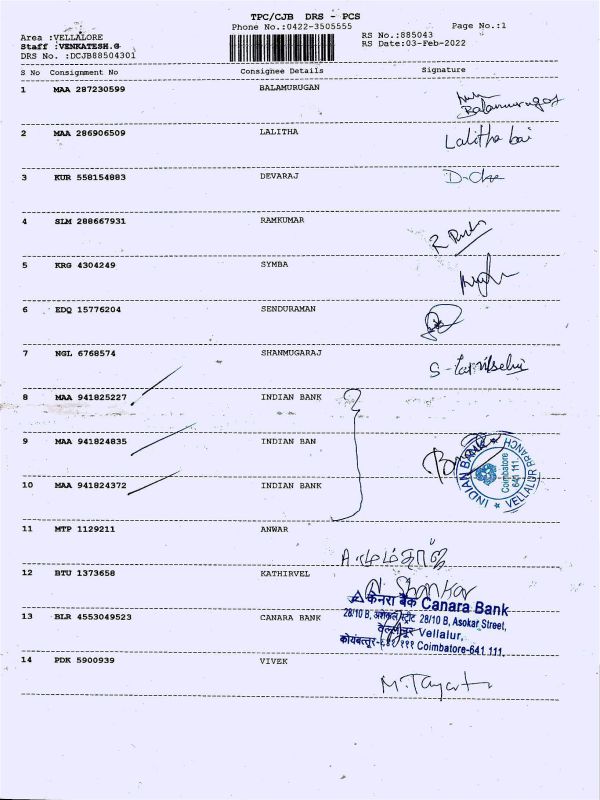 TPC/CJB DRS - PCS
Phone No.:0422-3505555
Page No.:1
Area :VELLALORE
Staff :VENKATESH.G
DRS No. :DCJB88504301
RS No.:885043
RS Date:03-Feb-2022
S No Consignment No Consignee Details Signature
1 MAA 287230599 BALAMURUGAN
Balamurugan
2 MAA 286906509 LALITHA Lalitha bai
3 KUR 558154883 DEVARAJ
4 SLM 288667931 RAMKUMAR
5 KRG 4304249 SYMBA
6 EDQ 15776204 SENDURAMAN
7 NGL 6768574 SHANMUGARAJ S-Tamilselvi
8 MAA 941825227 INDIAN BANK
9 MAA 941824835 INDIAN BAN
INDIAN BANK ★ VELLALUR BRANCH ★
Coimbatore
641 111
10 MAA 941824372 INDIAN BANK
11 MTP 1129211 ANWAR
12 BTU 1373658 KATHIRVEL
Shankar
केनरा बैंक Canara Bank
13 BLR 4553049523 CANARA BANK
28/10 B, अशोकर स्ट्रीट 28/10 B, Asokar Street,
Vellalur,
कोयंबत्तूर-६४१ १११ Coimbatore-641 111.
14 PDK 5900939 VIVEK